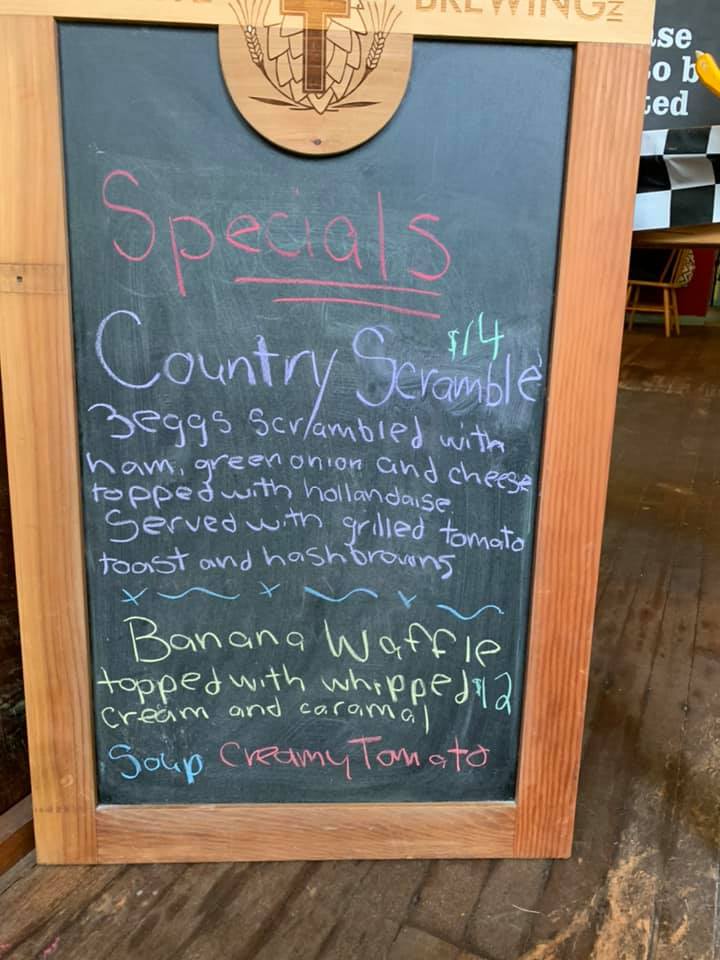 BREWING
Specials
$14
Country Scramble
3 eggs scrambled with
ham, green onion and cheese
topped with hollandaise
Served with grilled tomato
toast and hashbrowns
Banana Waffle
topped with whipped $12
cream and caramal
Soup Creamy Tomato